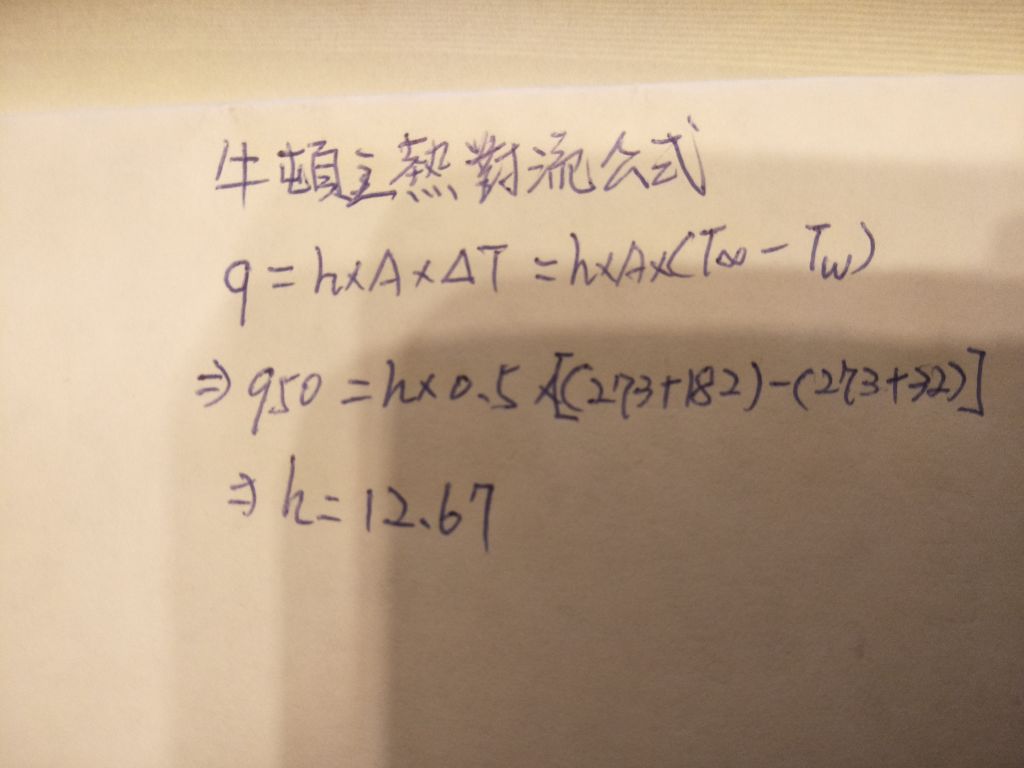 牛頓主熱對流公式
q = h×A×ΔT = h×A×(T∞ - Tw)
⇒ 950 = h×0.5×[(273+182)-(273+32)]
⇒ h = 12.67